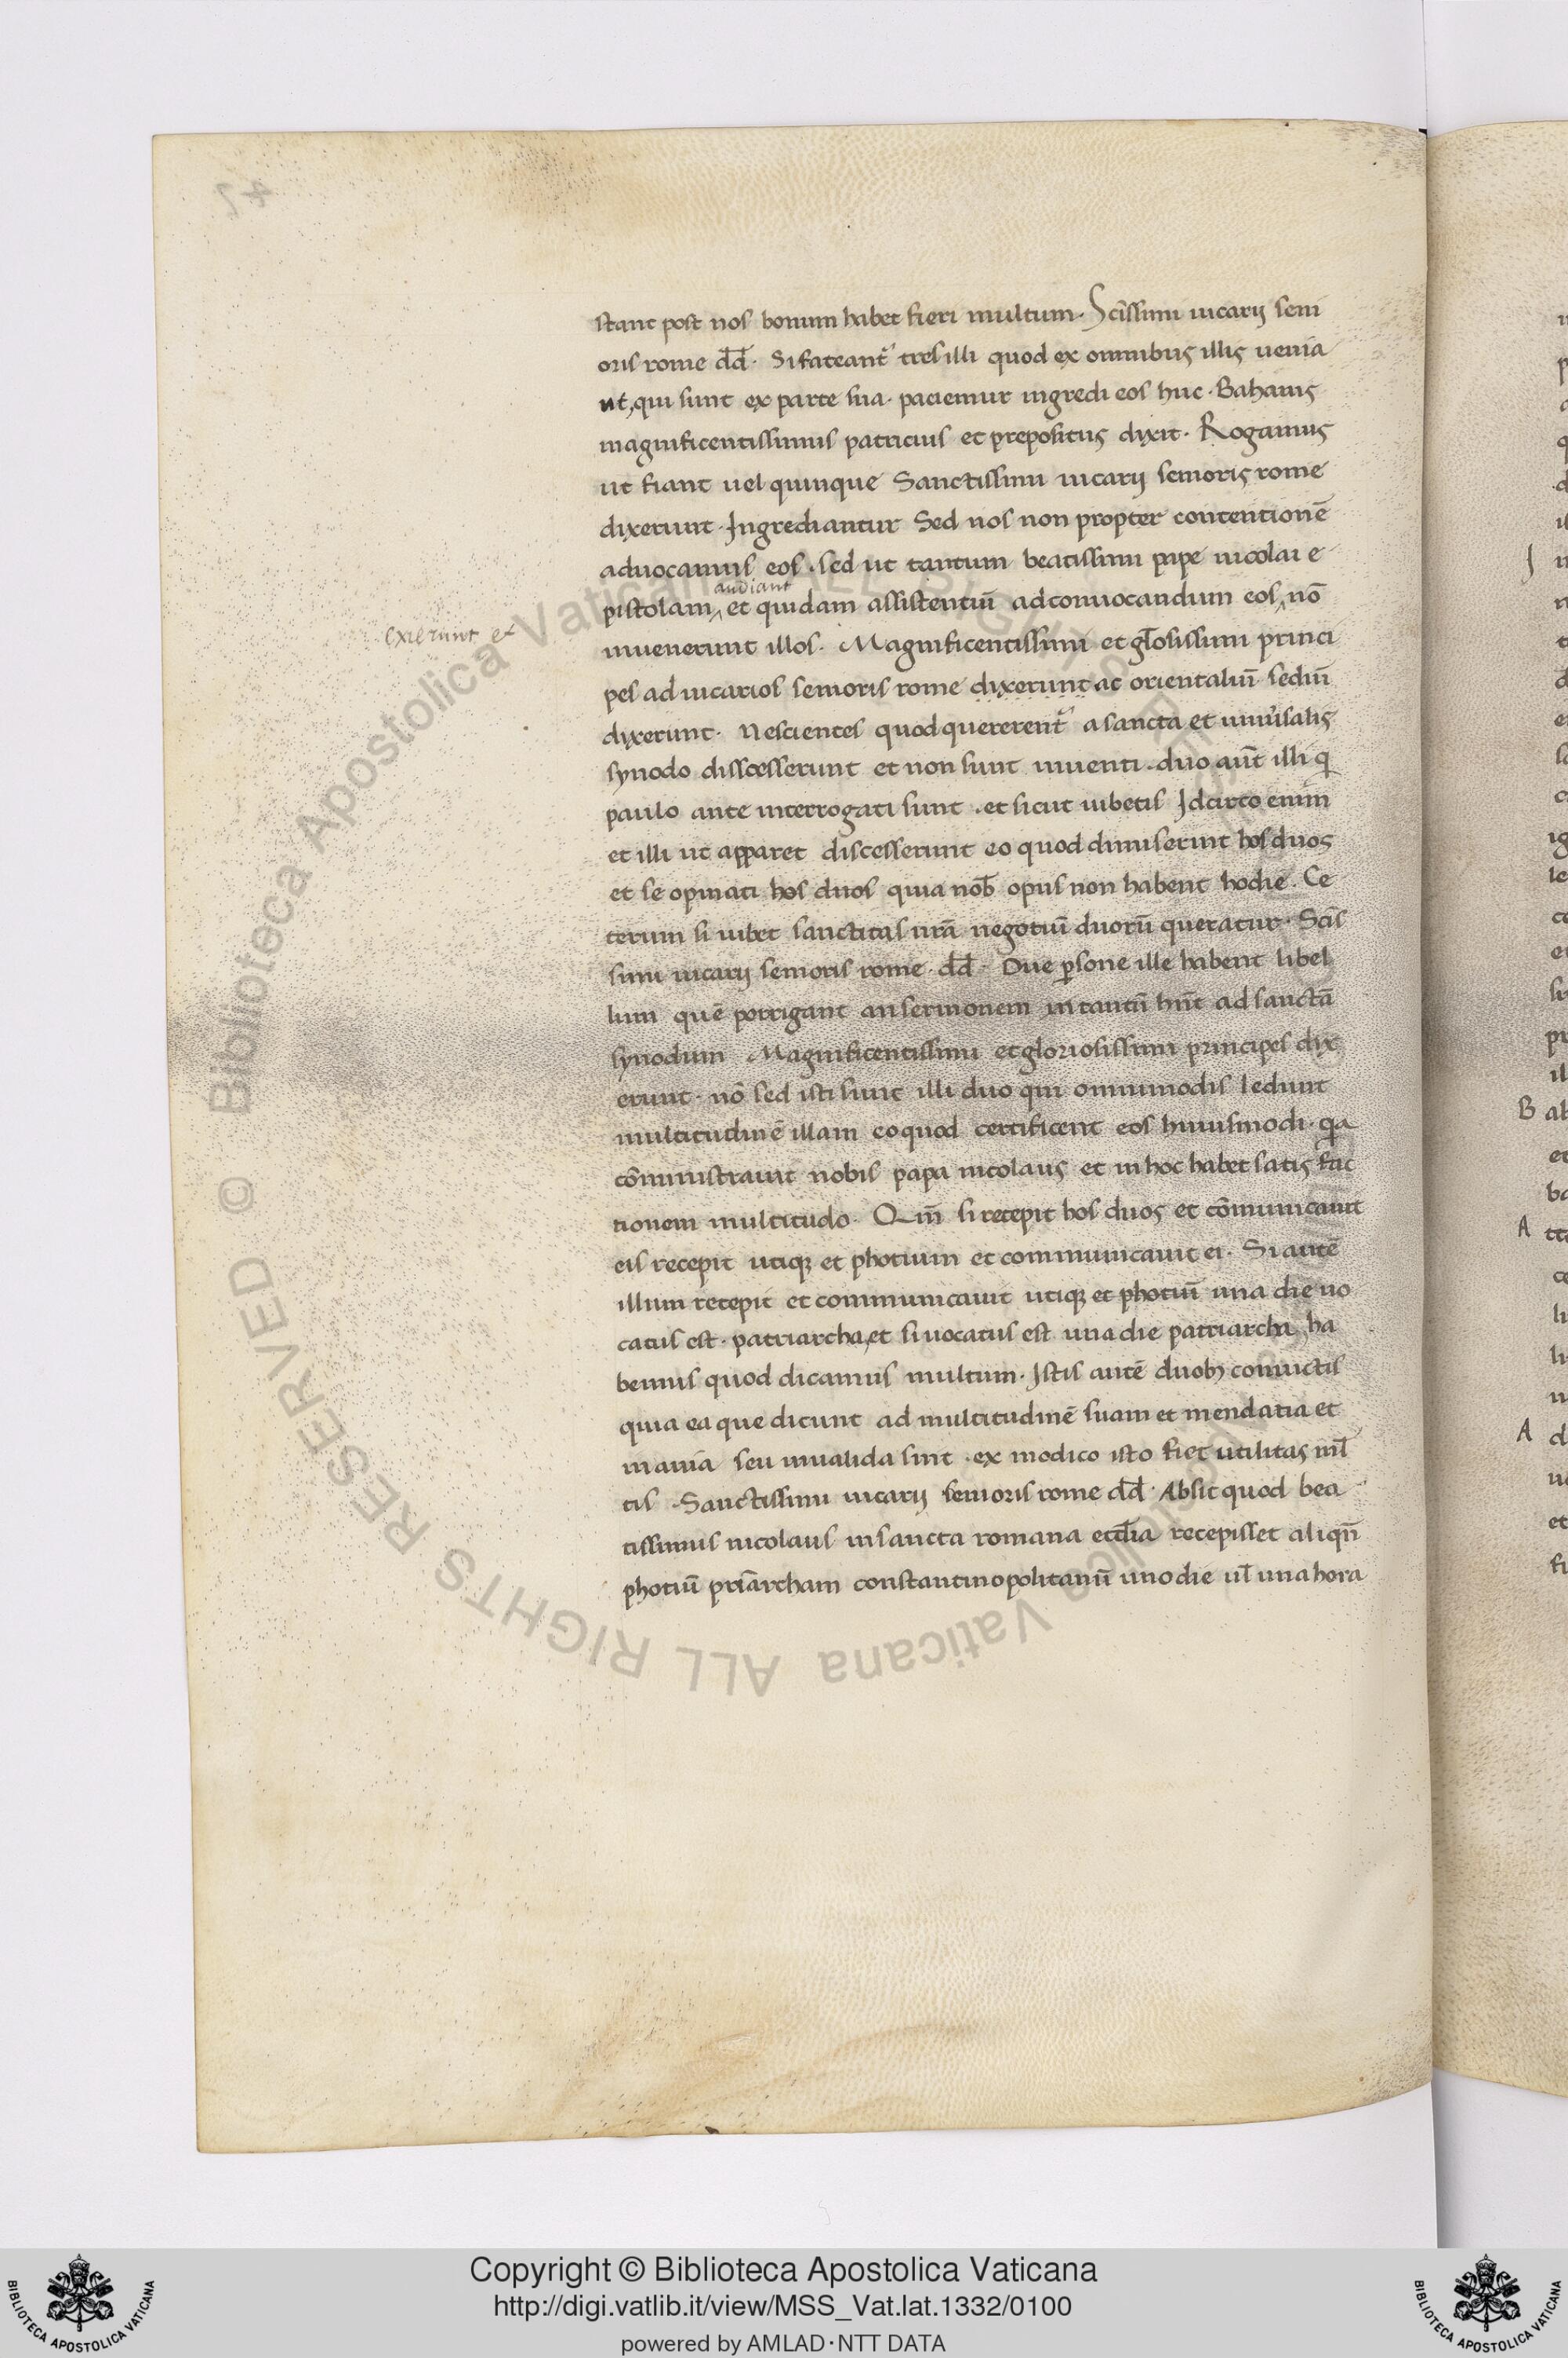 stant post nos bonum habet fieri multum. Scissimi uicarij seni
oris rome dd. Si fateant tres illi quod ex omnibus illis uenia
nt, qui sunt ex parte sua. paciemur ingredi eos huc. Bahanis
magnificentissimus patricius et prepositus dixit. Rogamus
ut fiant uel quinque Sanctissimi uicarij senioris rome
dixerunt. Ingrediantur Sed nos non propter contentionē
aduocamus eos. sed ut tantum beatissimi pape nicolai e
audiant
pistolam, et quidam assistentiū ad conuocandum eos, nō
exierunt et
inuenerunt illos. Magnificentissimi et glosissimi princi
pes ad uicarios senioris rome dixerunt ac orientaliū sediū
dixerunt. Nescientes quod quererent a sancta et uniusalis
synodo discesserunt et non sunt inuenti. duo aūt illi q
paulo ante interrogati sunt. et sicut iubetis Idcirco enim
et illi ut apparet discesserunt eo quod dimiserint hos duos
et se opinati hos duos quia nob opus non habent hodie. Ce
terum si iubet sanctitas urā negotiū duorū queratur. Scis
simi uicarij senioris rome. dd. Due psone ille habent libel
lum quē porrigant an sermonem in tantū hnt ad sanctā
synodum Magnificentissimi et gloriosissimi principes dix
erunt. nō sed isti sunt illi duo qui omnimodis ledunt
multitudinē illam eo quod certificent eos huiusmodi. qa
cōministrauit nobis papa nicolaus et in hoc habet satis fac
tionem multitudo. Qm̄ si recepit hos duos et cōmunicauit
eis recepit utiqz et photium et communicauit ei. Si autē
illum recepit et communicauit utiqz et photiū una die uo
catus est. patriarcha, et si uocatus est una die patriarcha, ha
bemus quod dicamus multum. Istis autē duobz conuictis
quia ea que dicunt ad multitudinē suam et mendatia et
inania seu inualida sint. ex modico isto fiet utilitas ml
tis. Sanctissimi uicarij senioris rome dd. Absit quod bea
tissimus nicolaus in sancta romana ecclia recepisset aliqn̄
photiū priārcham constantinopolitanū uno die ul una hora
Copyright © Biblioteca Apostolica Vaticana
http://digi.vatlib.it/view/MSS_Vat.lat.1332/0100
powered by AMLAD·NTT DATA
BIBLIOTECA APOSTOLICA VATICANA
BIBLIOTECA APOSTOLICA VATICANA